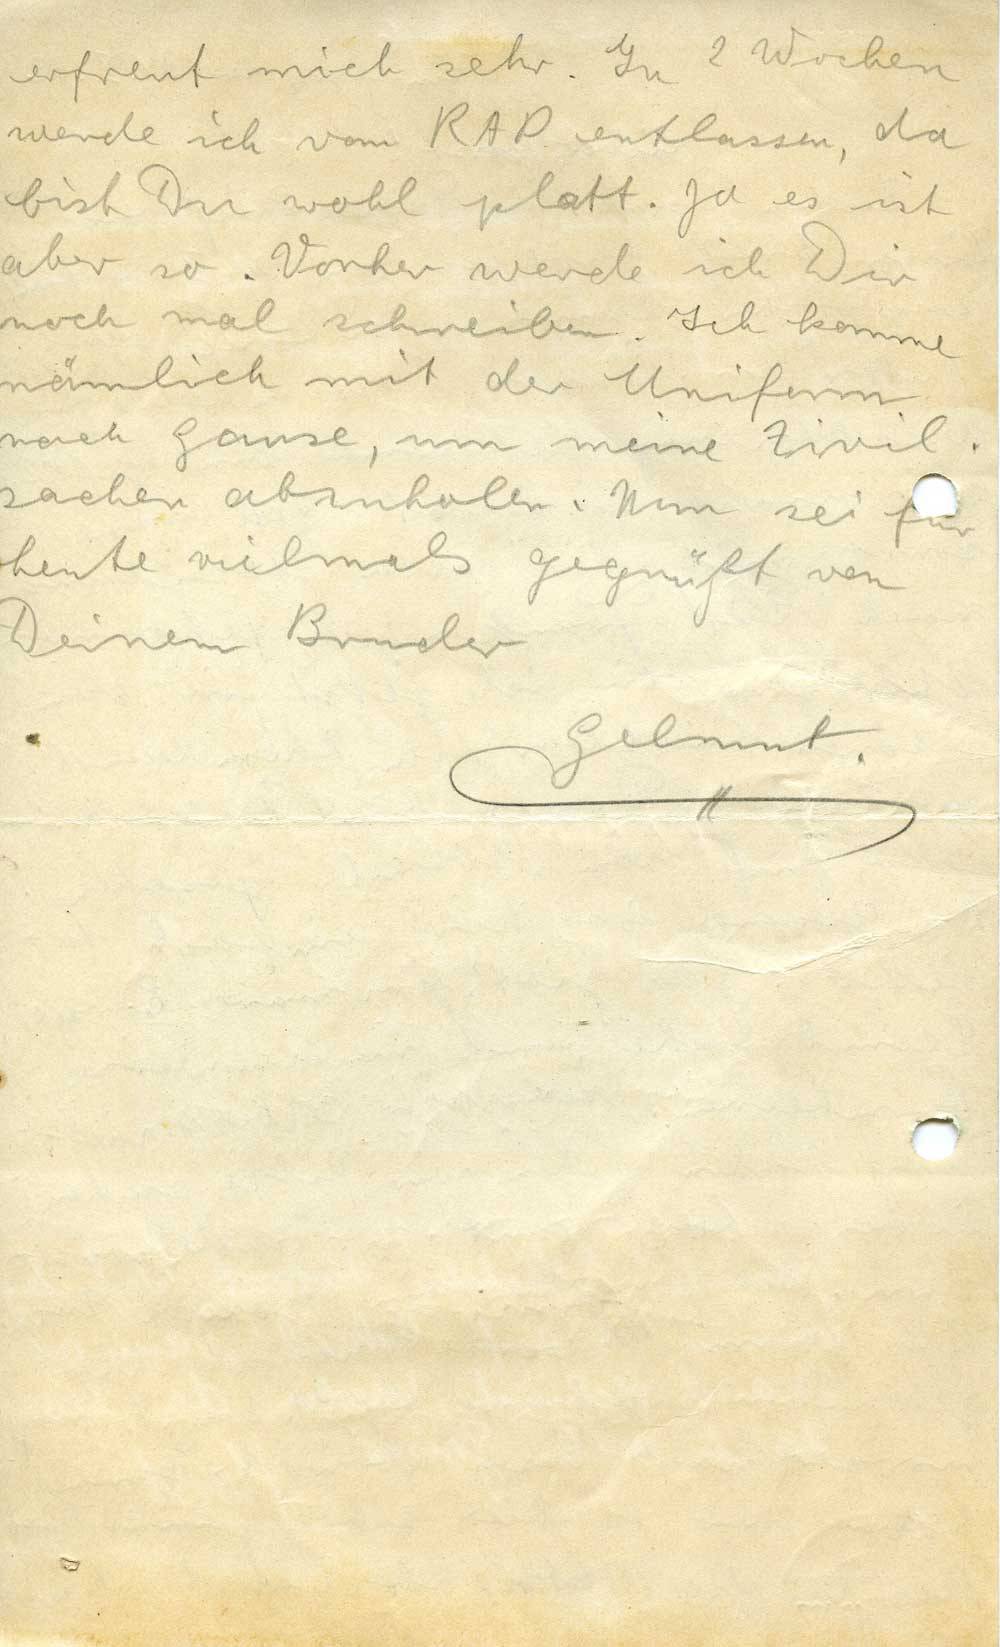 erfreut mich sehr. In 2 Wochen
werde ich vom RAD. entlassen, da
bist Du wohl platt. Ja es ist
aber so. Vorher werde ich Dir
noch mal schreiben. Ich komme
nämlich mit der Uniform
nach Hause, um meine Zivil.
sachen abzuholen. Nun sei für
heute vielmals gegrüßt von
Deinem Bruder
Helmut.